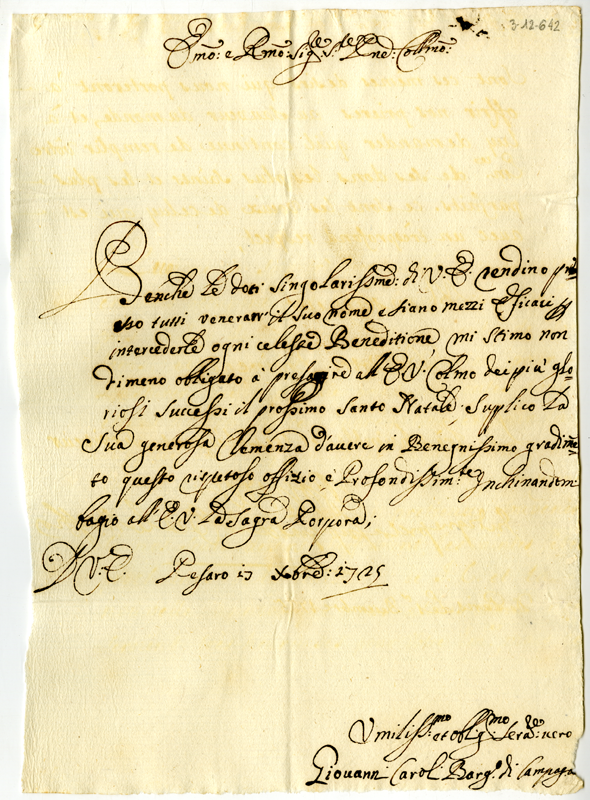 3-12-642
Emo: e Rmo: Sigre Sre Pne: Colmo:
Benche le doti singolarissme: di V: E: rendino pre
sso tutti venerato il suo nome e siano mezzi efficaci p
intercederle ogni celeste Beneditione, mi stimo non
dimeno obligato à presagire all'E: V: Colmo dei più glo-
riosi successi il prossimo Santo Natale; Suplico la
Sua generosa Clemenza d'avere in Benegnissimo gradime-
to questo rispetoso offizio è Profondissim:te Inchinandom
bagio all'E: V: la Sagra Porpora;
D V: E: Pesaro 17 Xbre: 1725
Umiliss:mo et oblig:mo Serre: vero
Giovanni Carol: Barg: di Campagna